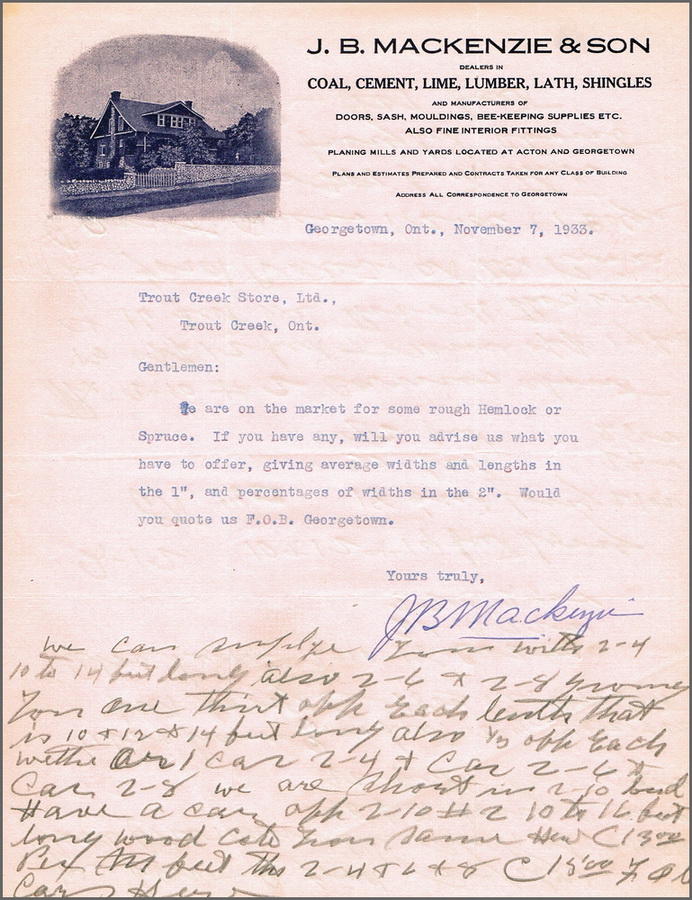 J. B. MACKENZIE & SON
DEALERS IN
COAL, CEMENT, LIME, LUMBER, LATH, SHINGLES
AND MANUFACTURERS OF
DOORS, SASH, MOULDINGS, BEE-KEEPING SUPPLIES ETC.
ALSO FINE INTERIOR FITTINGS
PLANING MILLS AND YARDS LOCATED AT ACTON AND GEORGETOWN
PLANS AND ESTIMATES PREPARED AND CONTRACTS TAKEN FOR ANY CLASS OF BUILDING
ADDRESS ALL CORRESPONDENCE TO GEORGETOWN
Georgetown, Ont., November 7, 1933.
Trout Creek Store, Ltd.,
Trout Creek, Ont.
Gentlemen:
We are on the market for some rough Hemlock or
Spruce. If you have any, will you advise us what you
have to offer, giving average widths and lengths in
the 1", and percentages of widths in the 2". Would
you quote us F.O.B. Georgetown.
Yours truly,
JB Mackenzie
we can with 2-4
10 to 14 feet long also 2-6 & 2-8
one off Each that
is 10 & 12 & 14 feet long also 1/3 off Each
1 Car 2-4 & Car 2-6 &
Car 2-8 we are short in 2-10 but
Have a car off 2-10 #2 10 to 16 feet
long wood same
Per feet 2-4 & 6 & 8
Car